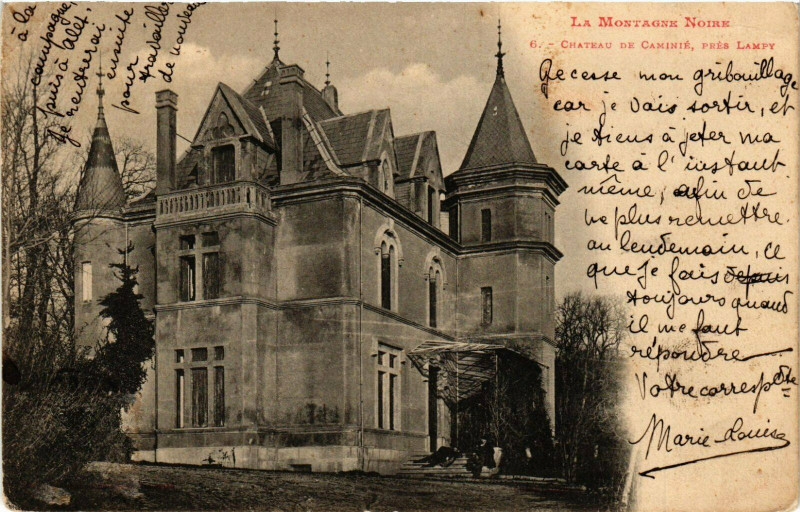 à la
campagne,
puis à Alet,
Je rentrerai
ensuite
pour
travailler
de nouveau
LA MONTAGNE NOIRE
6. - CHATEAU DE CAMINIÉ, PRÈS LAMPY
Je cesse mon gribouillage
car je vais sortir, et
je tiens à jeter ma
carte à l'instant
même, afin de
ne plus remettre
au lendemain, ce
que je fais depuis
toujours quand
il me faut
répondre
Votre correspdte
Marie-Louise